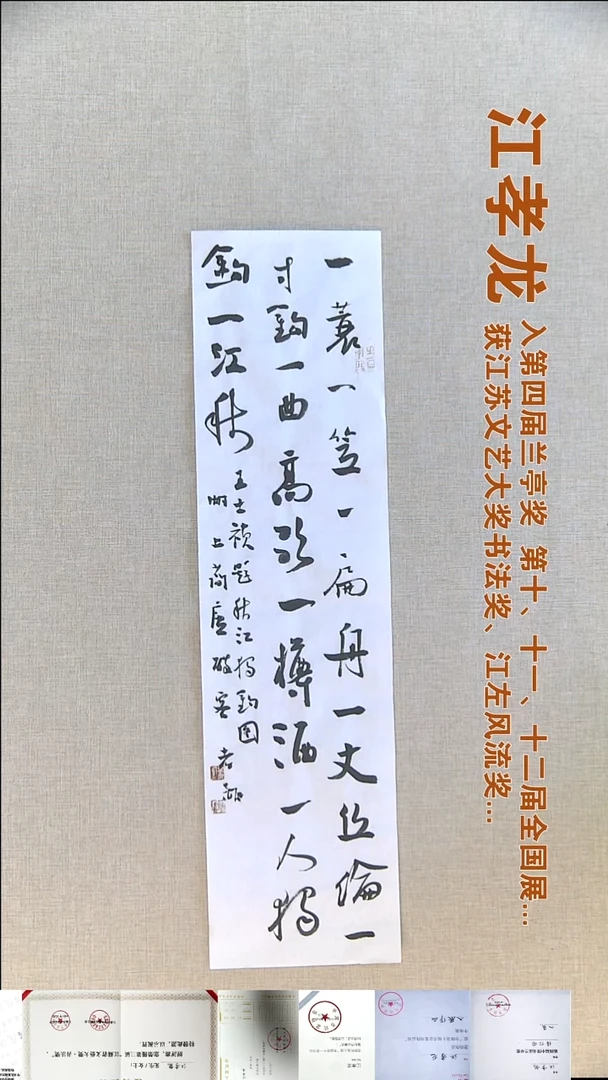 江孝龙
入第四届兰亭奖 第十、十一、十二届全国展...
获江苏文艺大奖书法奖、江左风流奖...
一蓑一笠一扁舟一丈丝纶一
寸鈎一曲高歌一樽酒一人獨
釣一江秋
王士禎題秋江獨釣图
湖上
孝龍